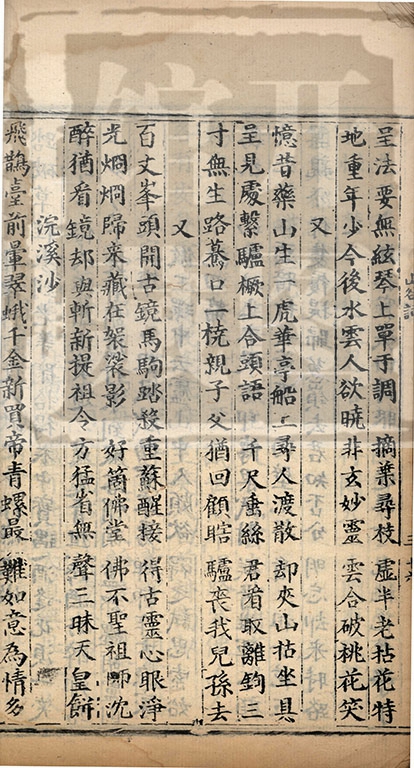 呈法要無絃琴上單于調 摘葉尋枝虛半老拈花特
地重年少今後水雲人欲曉非玄妙靈雲合破桃花笑
又
憶昔藥山生一虎華亭船上尋人渡散却夾山拈坐具
呈見處繫驢橛上合頭語 千尺垂絲君看取離鉤三
寸無生路驀口一橈親子父猶回顧瞎驢喪我兒孫去
又
百丈峯頭開古鏡馬駒踏殺重蘇醒接得古靈心眼淨
光烱烱歸來藏在袈裟影 好箇佛堂佛不聖祖師沈
醉猶看鏡却與斬新提祖令方猛省無聲三昧天皇餅
浣溪沙
飛鵲臺前暈翠蛾千金新買帝青螺最難如意為情多